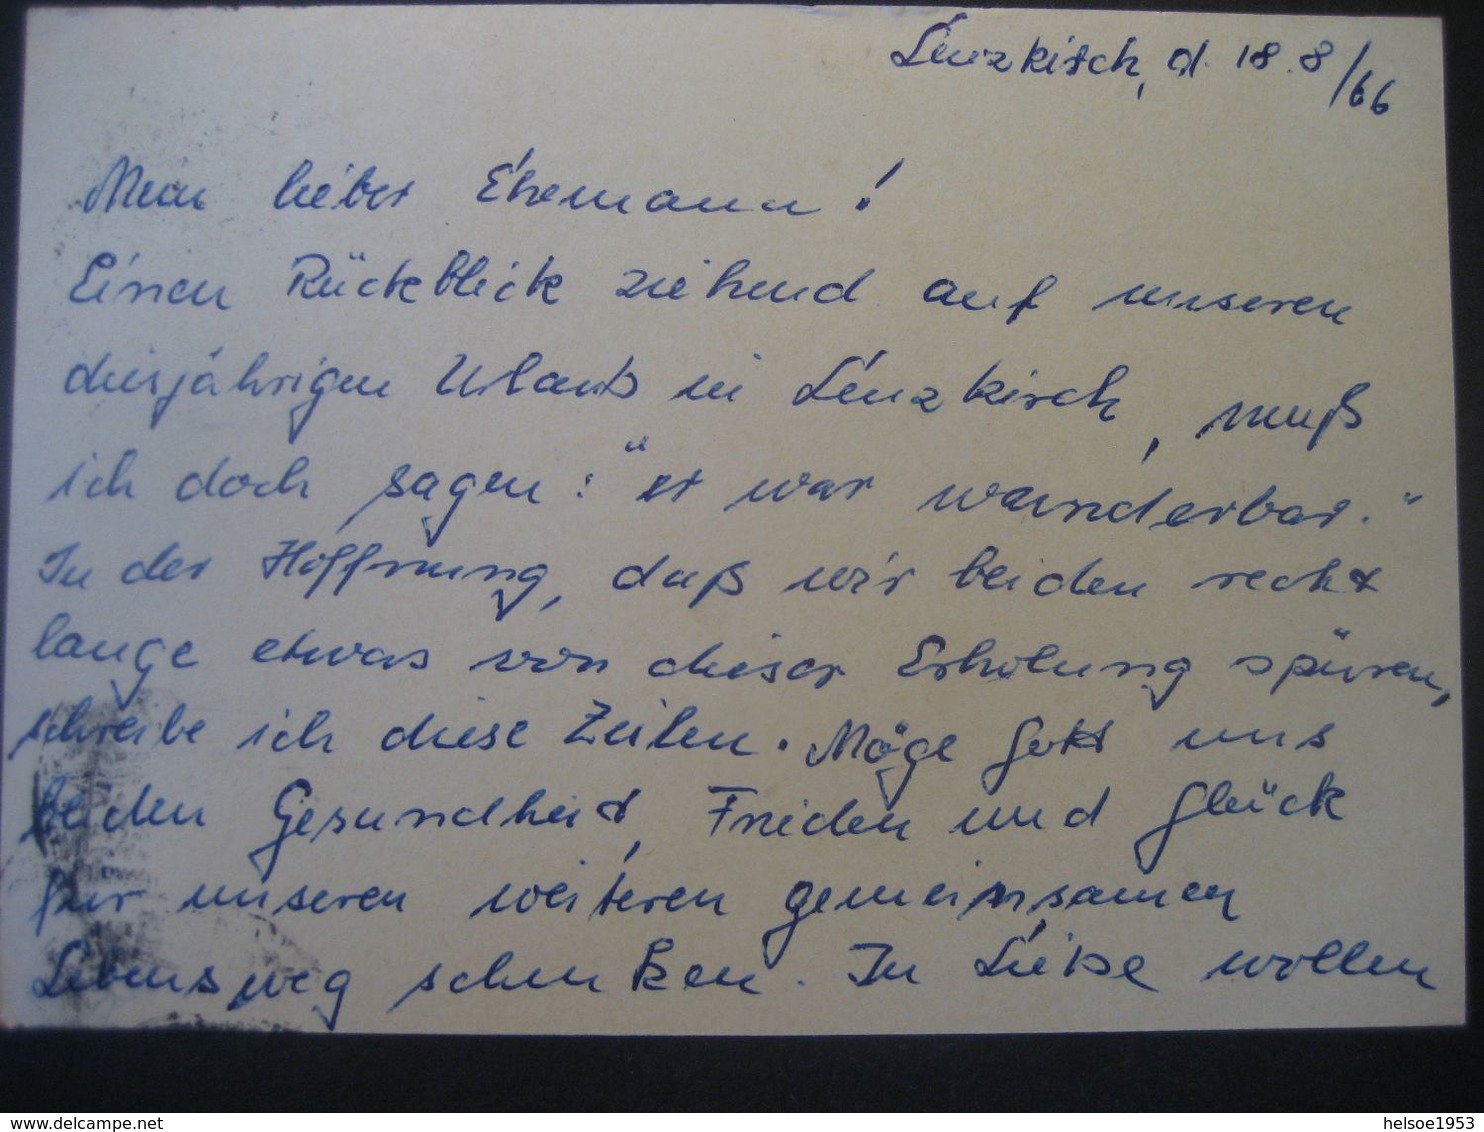 Lenzkirch, d. 18.8/66
Mein lieber Ehemann!
Einen Rückblick ziehend auf unseren
diesjährigen Urlaub in Lenzkirch, muß
ich doch sagen: "es war wunderbar."
In der Hoffnung, daß wir beiden recht
lange etwas von dieser Erholung spüren,
schreibe ich diese Zeilen. Möge Gott uns
beiden Gesundheit, Frieden und Glück
für unseren weiteren gemeinsamen
Lebensweg schenken. In Liebe wollen
delcampe.net
helsoe1953